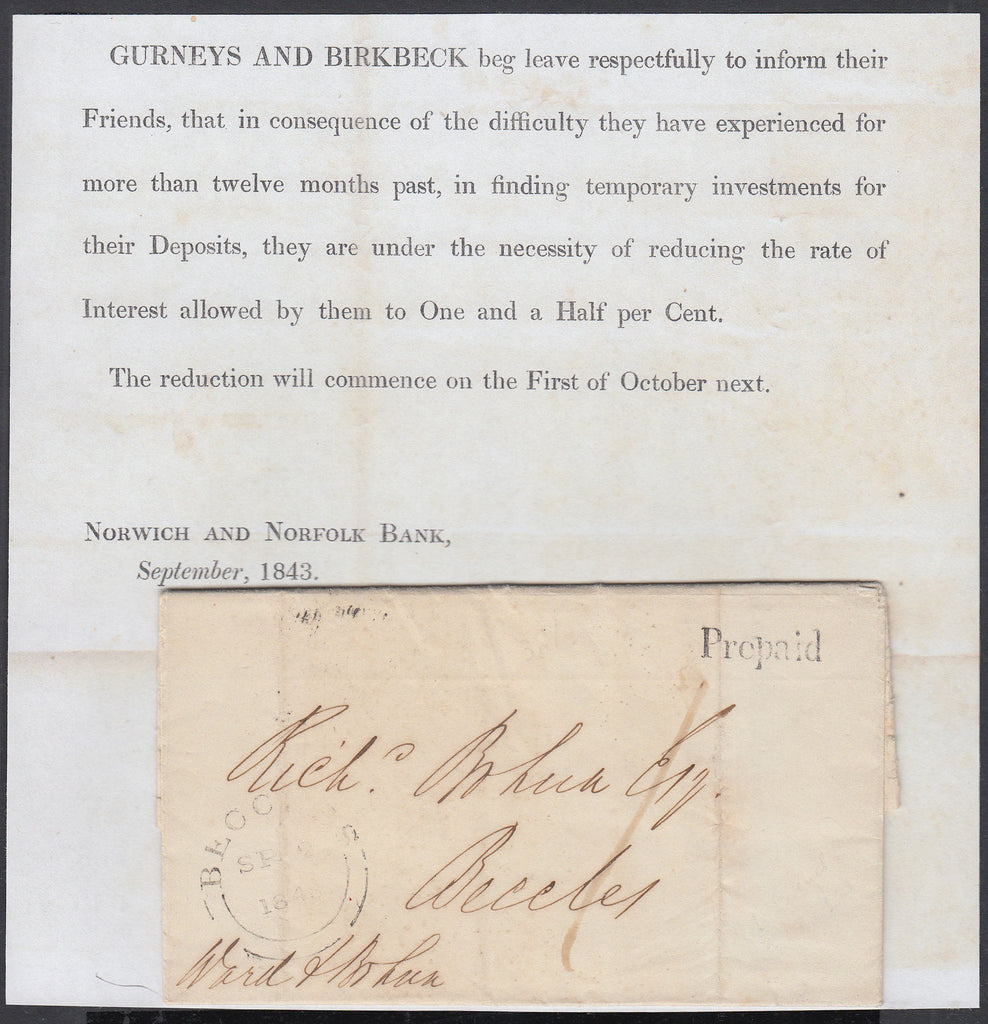 GURNEYS AND BIRKBECK beg leave respectfully to inform their
Friends, that in consequence of the difficulty they have experienced for
more than twelve months past, in finding temporary investments for
their Deposits, they are under the necessity of reducing the rate of
Interest allowed by them to One and a Half per Cent.
The reduction will commence on the First of October next.
NORWICH AND NORFOLK BANK,
September, 1843.
Prepaid
Richd. Bohun Esq.
Beccles
BECC
SP
184
Ward & Bohun